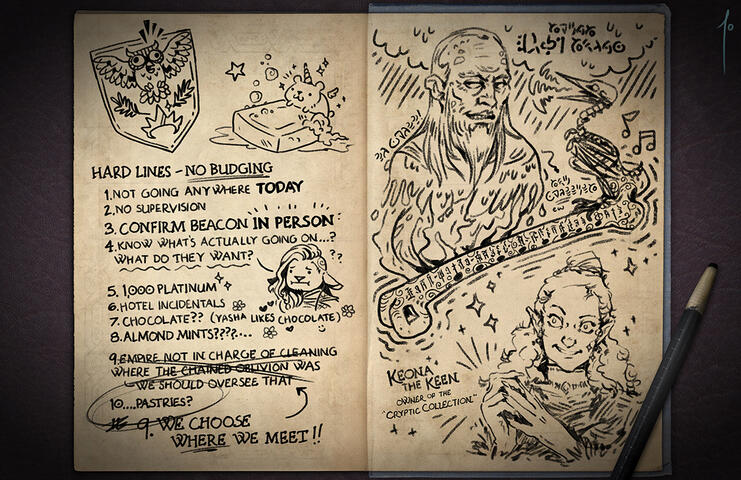 HARD LINES - NO BUDGING
1. NOT GOING ANYWHERE TODAY
2. NO SUPERVISION
3. CONFIRM BEACON IN PERSON
4. KNOW WHAT'S ACTUALLY GOING ON...?
WHAT DO THEY WANT?
??
5. 1,000 PLATINUM
6. HOTEL INCIDENTALS
7. CHOCOLATE?? (YASHA LIKES CHOCOLATE)
8. ALMOND MINTS????....
9. EMPIRE NOT IN CHARGE OF CLEANING
WHERE THE CHAINED OBLIVION WAS
WE SHOULD OVERSEE THAT
10....PASTRIES?
9. WE CHOOSE
WHERE WE MEET!!
KEONA
THE KEEN
OWNER OF THE
"CRYPTIC COLLECTION"